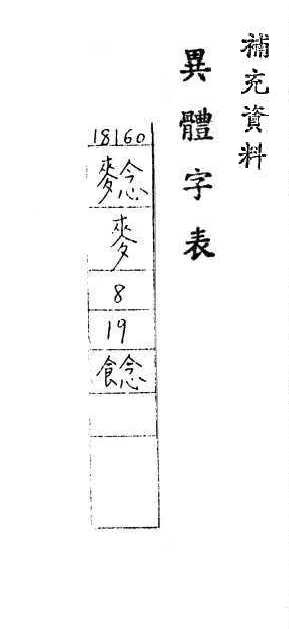 補充資料
異體字表
18160
麥
8
19